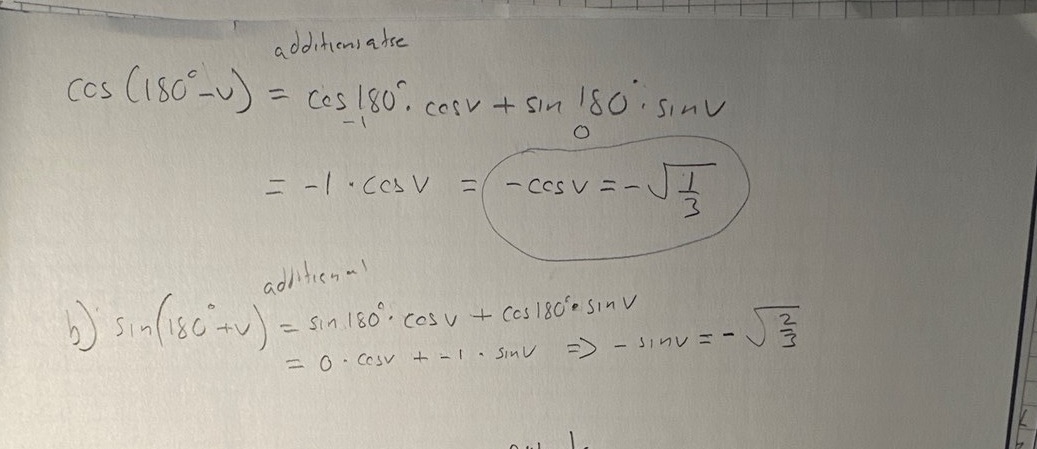 additionsatse
cos (180° - v) = cos 180° · cos v + sin 180° · sin v
-1 0
= -1 · cos v = - cos v = - √(1/3)
b) sin(180° + v) = sin 180° · cos v + cos 180° · sin v
= 0 · cos v + -1 · sin v => - sin v = - √(2/3)